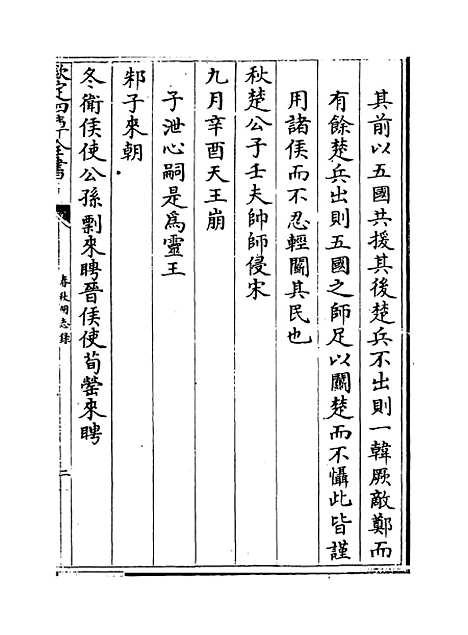 其前以五國共援其後楚兵不出則一韓厥敵鄭而
有餘楚兵出則五國之師足以鬬楚而不懾此皆謹
用諸侯而不忍輕鬬其民也
秋楚公子壬夫帥師侵宋
九月辛酉天王崩
子泄心嗣是爲靈王
邾子來朝
冬衛侯使公孫剽來聘晉侯使荀罃來聘
欽定四庫全書
春秋明志錄
二